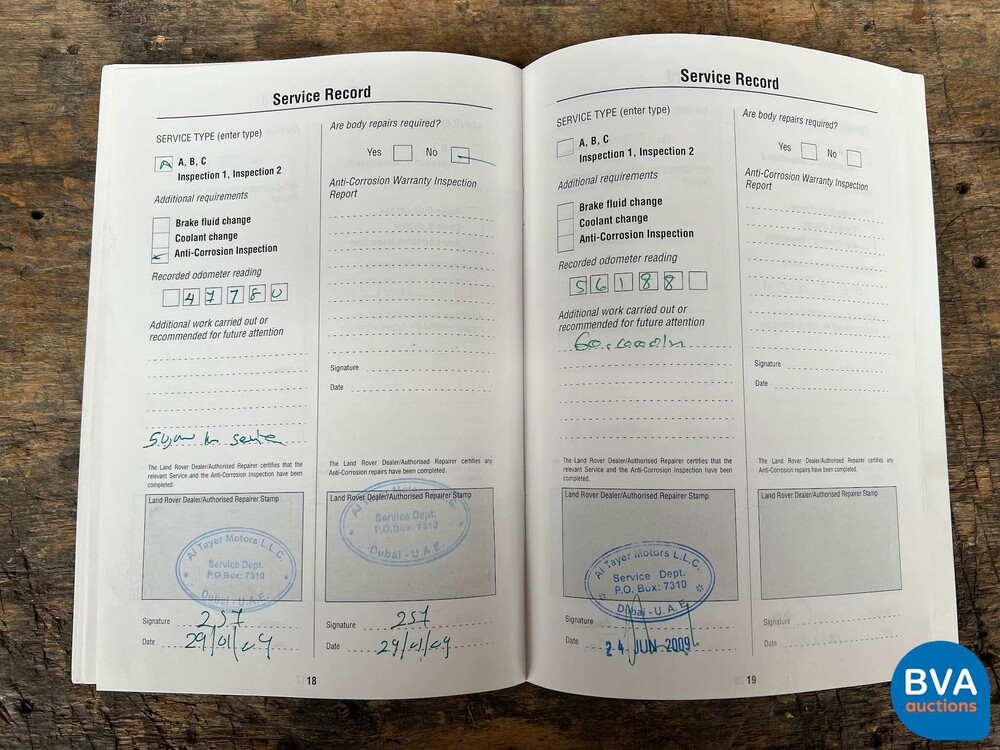 Service Record
SERVICE TYPE (enter type)
A
A, B, C
Inspection 1, Inspection 2
Additional requirements
Brake fluid change
Coolant change
Anti-Corrosion Inspection
Recorded odometer reading
4 7 7 8 0
Additional work carried out or
recommended for future attention
The Land Rover Dealer/Authorised Repairer certifies that the
relevant Service and the Anti-Corrosion Inspection have been
completed.
Land Rover Dealer/Authorised Repairer Stamp
Al Tayer Motors L.L.C.
Service Dept.
P.O.Box: 7310
Dubai - U.A.E.
Signature 257
Date 29/01/09
Are body repairs required?
Yes No
Anti-Corrosion Warranty Inspection
Report
Signature
Date
The Land Rover Dealer/Authorised Repairer certifies any
Anti-Corrosion repairs have been completed.
Land Rover Dealer/Authorised Repairer Stamp
Service Dept.
P.O.Box: 7310
Dubai - U.A.E.
Signature 257
Date 29/01/09
18
Service Record
SERVICE TYPE (enter type)
A, B, C
Inspection 1, Inspection 2
Additional requirements
Brake fluid change
Coolant change
Anti-Corrosion Inspection
Recorded odometer reading
5 6 1 8 8
Additional work carried out or
recommended for future attention
The Land Rover Dealer/Authorised Repairer certifies that the
relevant Service and the Anti-Corrosion Inspection have been
completed.
Land Rover Dealer/Authorised Repairer Stamp
Al Tayer Motors L.L.C.
Service Dept.
P.O. Box: 7310
Dubai - U.A.E.
Signature
Date 24 JUN 2009
Are body repairs required?
Yes No
Anti-Corrosion Warranty Inspection
Report
Signature
Date
The Land Rover Dealer/Authorised Repairer certifies any
Anti-Corrosion repairs have been completed.
Land Rover Dealer/Authorised Repairer Stamp
19
BVA
auctions